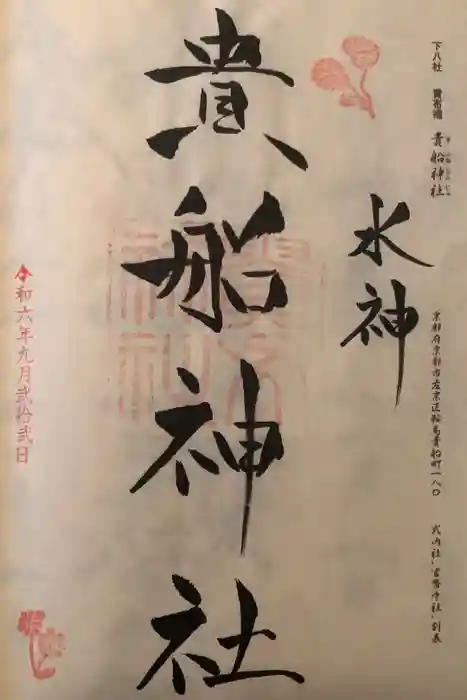 下八社 貴布禰 貴船神社
京都府京都市左京区鞍馬貴船町一八〇
式内社 官幣中社 別表
水神
貴船神社
令和六年九月弐拾弐日